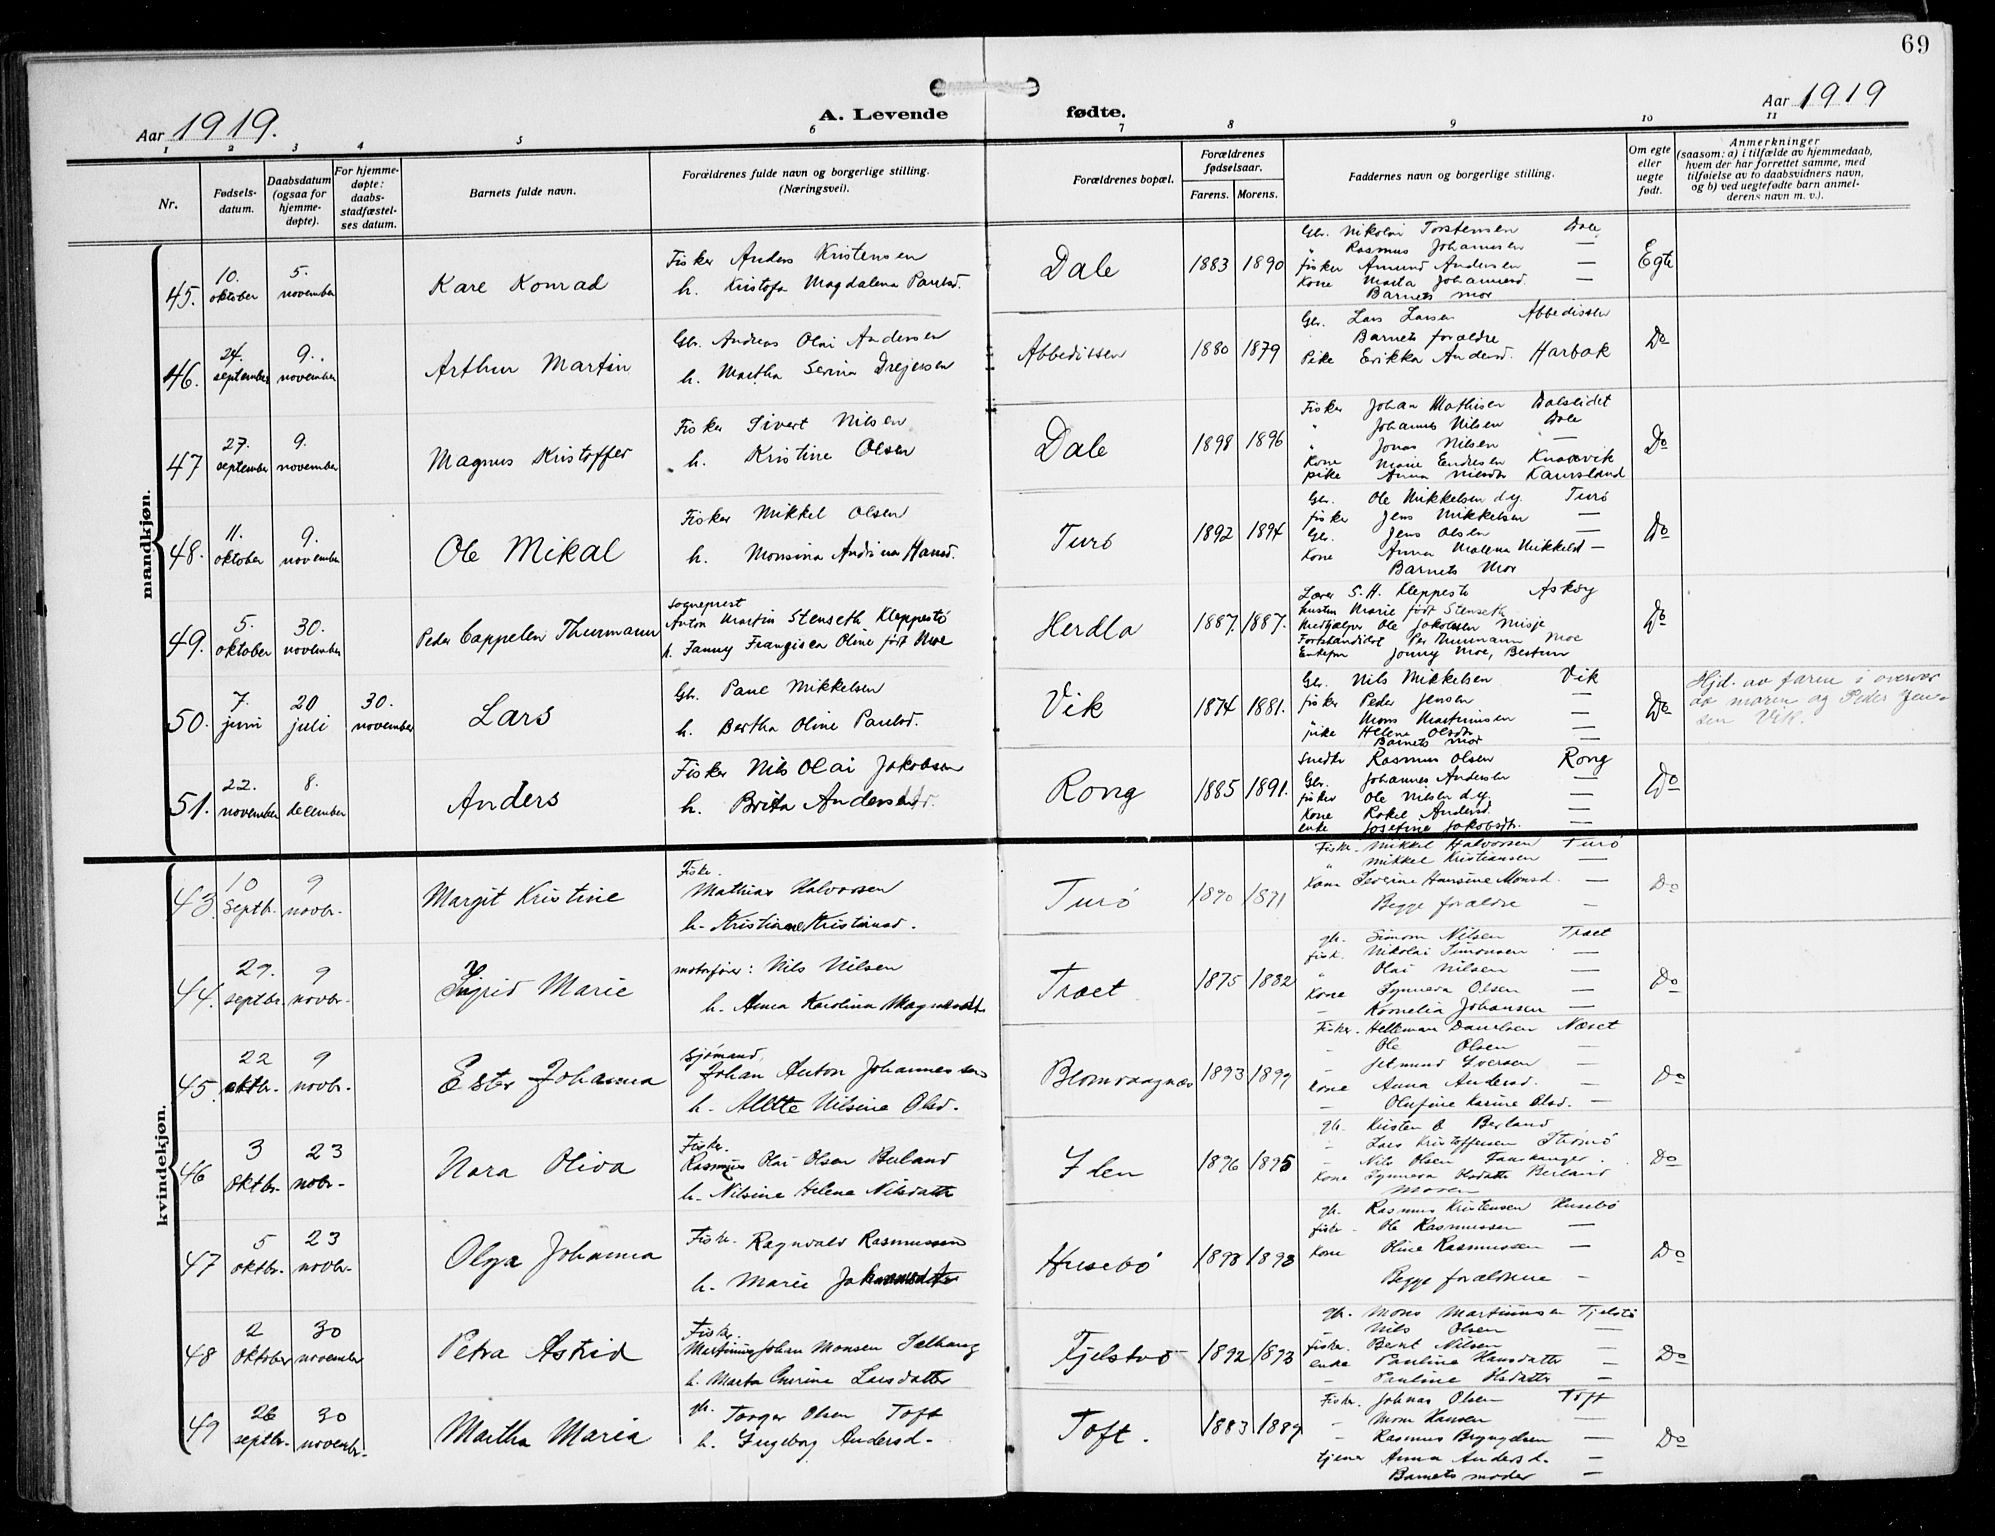 69
Aar 1919.
A. Levende fødte.
Aar 1919
1 2 3 4 5 6 7 8 9 10 11
Nr.
Fødsels-
datum.
Daabsdatum
(ogsaa for
hjemme-
døpte).
For hjemme-
døpte:
daabs-
stadfæstel-
ses datum.
Barnets fulde navn.
Forældrenes fulde navn og borgerlige stilling.
(Næringsvei).
Forældrenes bopæl.
Forældrenes
fødselsaar.
Farens. Morens.
Faddernes navn og borgerlige stilling.
Om egte
eller
uegte
født.
Anmerkninger
(saasom: a) i tilfælde av hjemmedaab,
hvem der har forrettet samme, med
tilføielse av to daabsvidners navn,
og b) ved uegtefødte barn anmel-
derens navn m. v.).
mandkjøn.
45. 10. oktober 5. november
Kare Konrad
Fisker Anders Kristensen
h. Kristofa Magdalena Paulsd.
Dale 1883 1890
Gbr. Nikolai Torstensen Dale
" Rasmus Johannesen —
fisker Amund Andersen —
Kone Marta Johannesd. —
Barnets mor
Egte
46. 24. september 9. november
Arthur Martin
Gbr. Andreas Olai Andersen
h. Martha Serina Drejersen
Abbedissen 1880 1879
Gbr. Lars Larsen Abbedissen
Barnets forældre
Pike Erikka Andersd. Harbak
Do
47 27. september 9. november
Magnus Kristoffer
Fisker Sivert Nilsen
h. Kristine Olsen
Dale 1898 1896
Fisker Johan Mathisen Dalslidet
" Johannes Nilsen Dale
" Jonas Nilsen —
Kone Marie Endresen Knarvik
pike Anna Nilsdtr Kaursland
Do
48. 11. oktober 9. november
Ole Mikal
Fisker Mikkel Olsen
h. Monsina Andrina Hansd.
Turö 1892 1894
Gbr. Ole Mikkelsen d.y. Turö
fisker Jens Mikkelsen —
Gbr. Jens Olsen —
Kone Anna Malena Mikkelsd —
Barnets Mor
Do
49. 5. oktober 30. november
Peder Cappelen Thurmann
Sogneprest
Anton Martin Stenseth Kleppestö
h. Fanny Frangisca Oline født Moe
Herdla 1887. 1887.
Lærer S. H. Kleppestö Asköy
hustru Marie født Stenseth
Medhjælper Ole Jakobsen Misje
Forstkandidat Per Thurmann Moe
Enkefru Jonny Moe, Bestum
Do
50. 7. juni 20 juli 30. november
Lars
Gbr. Paul Mikkelsen
h. Bertha Oline Paulsd.
Vik 1874 1881.
Gbr. Nils Mikkelsen Vik
fisker Peder Jensen —
" Mons Martinusen —
pike Helene Olsdtr —
Barnets mor —
Do
Hjd. av faren i overvær
av moren og Peder Jen-
sen Vik.
51. 22. november 8. december
Anders
Fisker Nils Olai Jakobsen
h. Brita Andersdtr.
Rong 1885 1891.
Snedker Rasmus Olsen Rong
Gbr. Johannes Andersen —
fisker Ole Nilsen d.y. —
Kone Rakel Andersd. —
enke Josefine Jakobsdtr. —
Do
kvindekjøn.
43. 10 septbr. 9 novbr.
Margit Kristine
Fisker.
Mathias Halvorsen
h. Kristiane Kristiansd.
Turö 1890 1891
Fisker. Mikkel Halvorsen Turö
" Mikkel Kristiansen —
Kone Severine Hansine Monsd. —
Begge forældre —
Do
44. 29. septbr. 9 novbr.
Ingrid Marie
motorfører: Nils Nilsen
h. Anna Karolina Magnusdt.
Træet 1875 1882
gbr. Simon Nilsen Træet
fisk. Nikolai Simonsen —
" Olai Nilsen —
Kone Synneva Olsen —
" Kornelia Johansen —
Do
45. 22 oktbr. 9 novbr.
Ester Johanna
Sjømand,
Johan Anton Johannessen
h. Alette Nilsine Olsd.
Blomvaagnæs 1893 1899
Fisker. Helleman Danielsen Næset
" Ole Olsen —
" Selmund Iversen —
Kone Anna Andersd. —
" Olufine Karine Olsd. —
Do
46 3 oktbr. 23 nobr.
Nora Oliva
Fiskr.
Rasmus Olai Olsen Berland
h. Nilsine Helene Nilsdatter
Ilen 1896 1895
gbr. Kristen O Berland
" Lars Kristoffersen Strömö
" Nils Olsen
Kone Synneva Olsdatter Berland
Moren
Do
47 5 oktbr. 23 novbr.
Olga Johanna
Fiskr. Ragnvald Rasmussen
h. Marie Johannesdatter
Husebö 1898 1893
gbr. Rasmus Kristensen Husebö
fiskr. Ole Rasmussen —
Kone Oline Rasmussen —
Begge forældrene —
Do
48 2 oktober 30 november
Petra Astrid
Fiskr.
Martinus Johan Monsen Solhaug
h. Marta Larsdatter
Fjelstö 1892 1893
gbr. Mons Martinusen Fjelstö
" Nils Olsen —
fiskr. Bernt Nilsen —
enke Pauline Hansdatter —
" Pauline Olsdatter —
Do
49 26 septbr. 30 novembr.
Martha Maria
gbr. Torger Olsen Toft
h. Ingeborg Andersd.
Toft. 1883 1889
Fiskr. Johnas Olsen Toft
" Mons Hansen —
" Rasmus Bryngelsen —
tjener Anna Andersd. —
Barnets moder —
Do